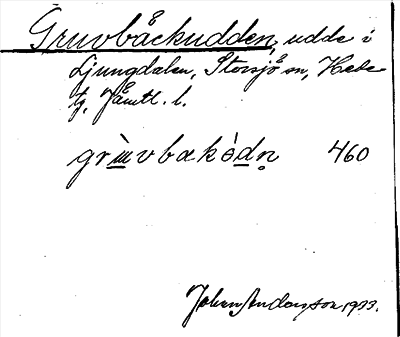 Gruvbåckudden, udde i
Ljungdalen, Storsjö sn, Hede
tg, Jämtl. l.
grùvbakòdn̥ 460
Johan Andersson 1933.